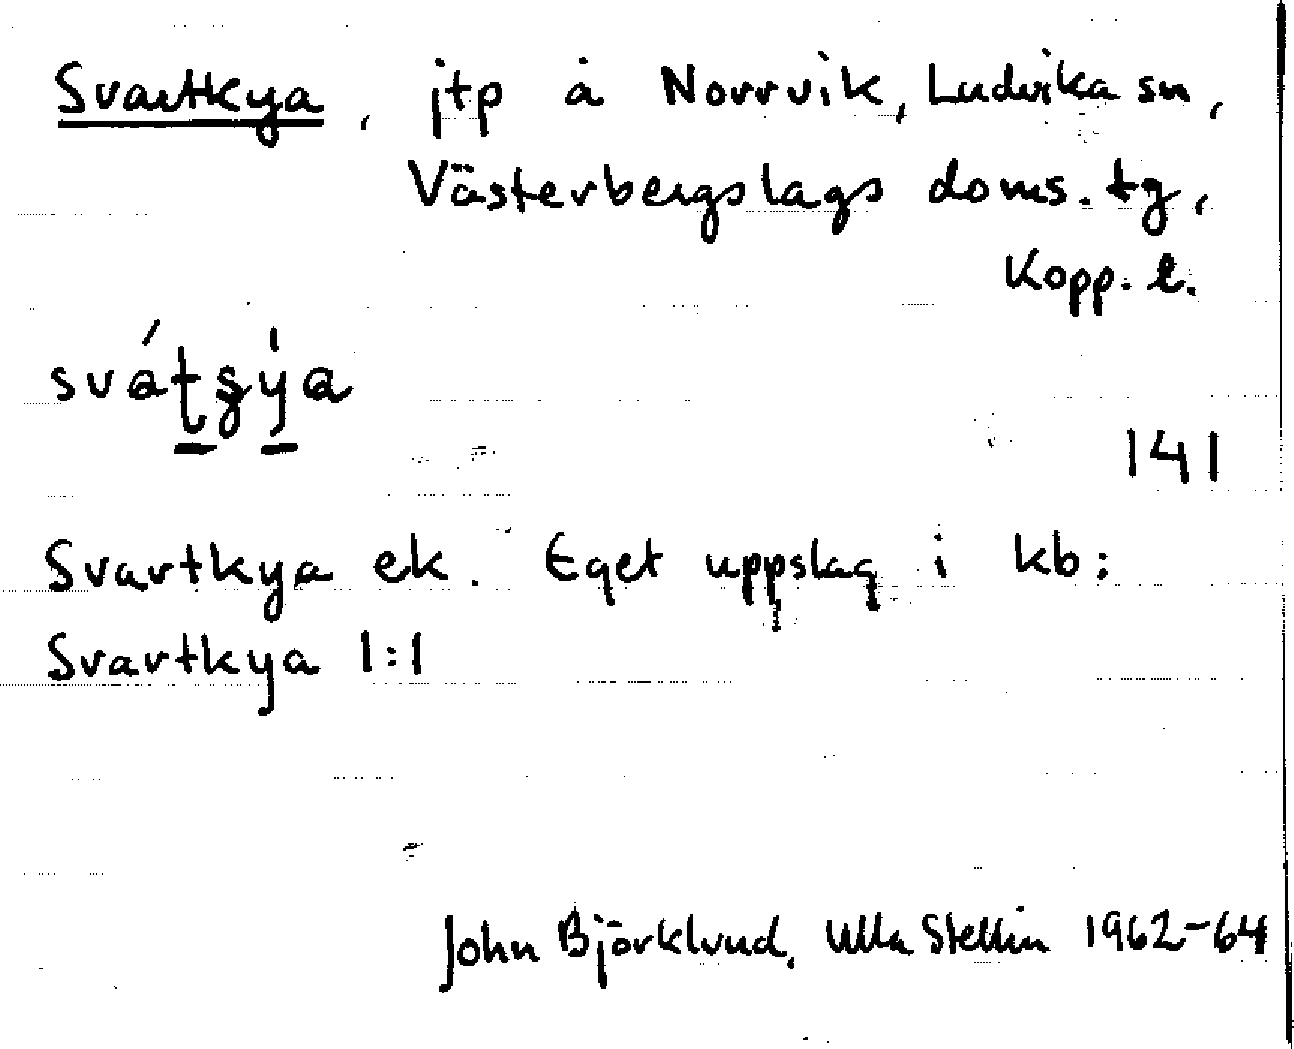 Svartkya, jtp å Norrvik, Ludvika sn,
Västerbergslags doms. tg,
Kopp. l.
141
Svartkya ek. Eget uppslag i kb:
Svartkya 1:1
John Björklund, Ulla Stellin 1962-64